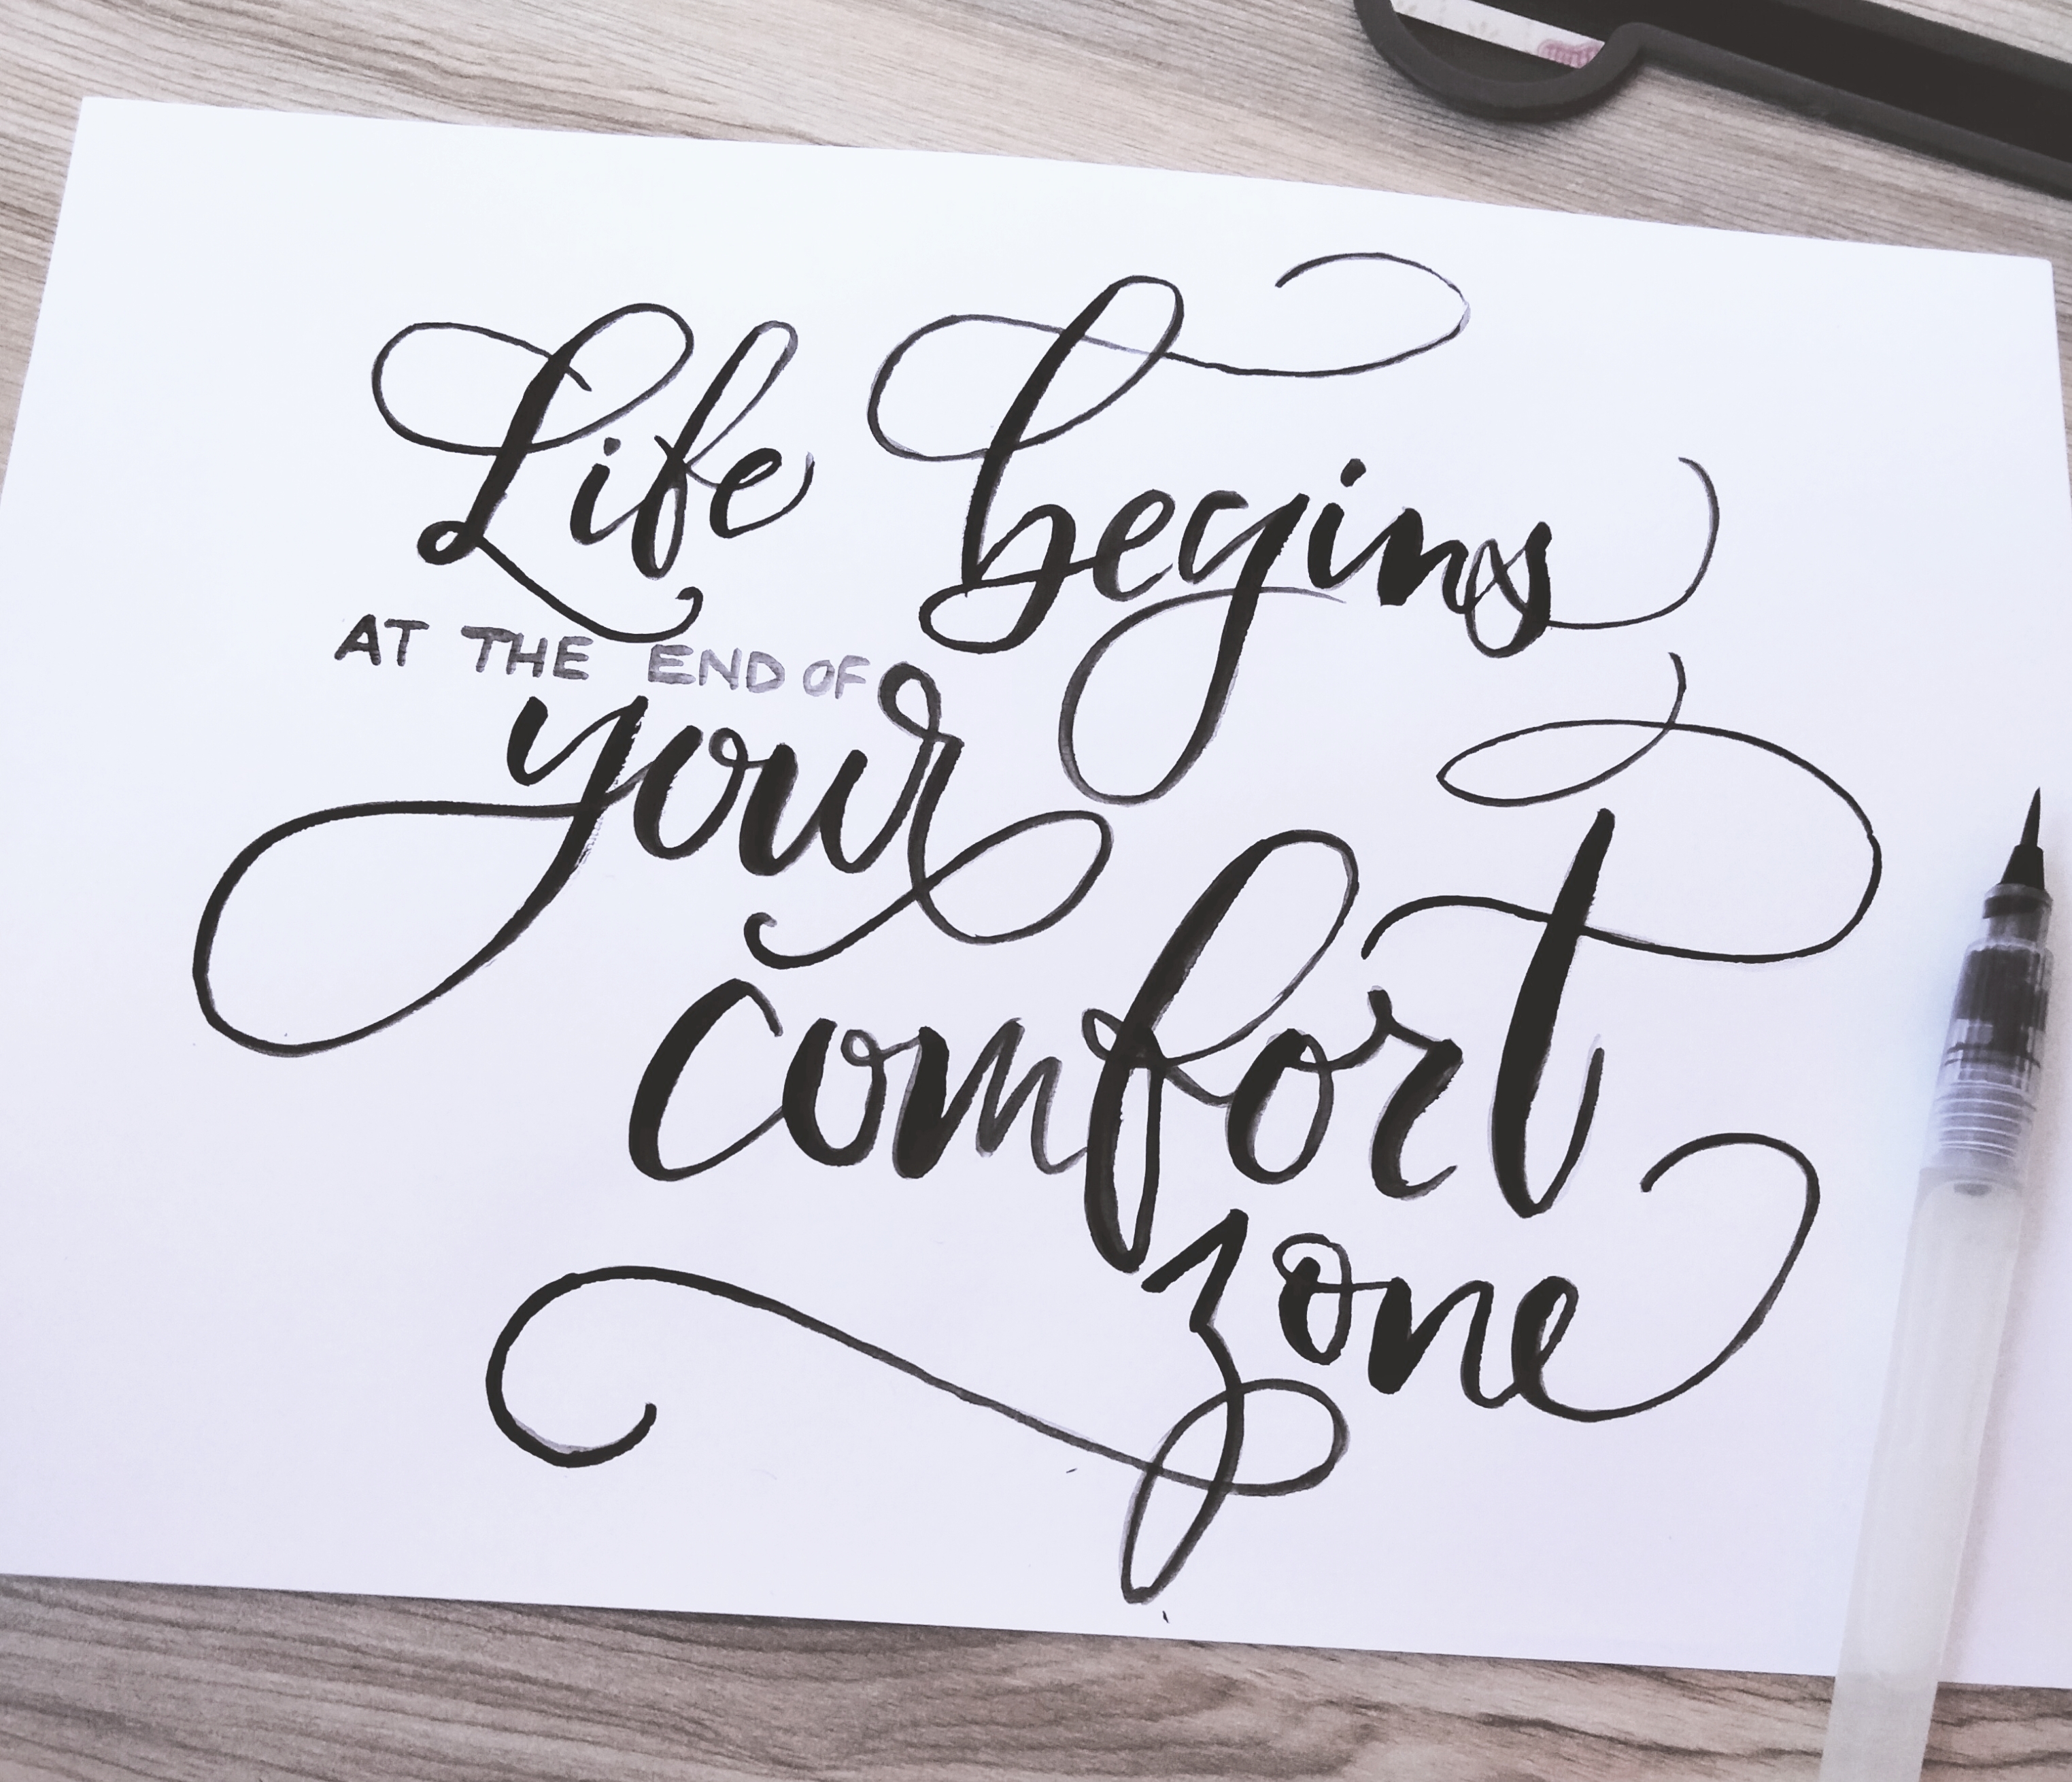 Life begins
AT THE END OF
your
comfort
zone